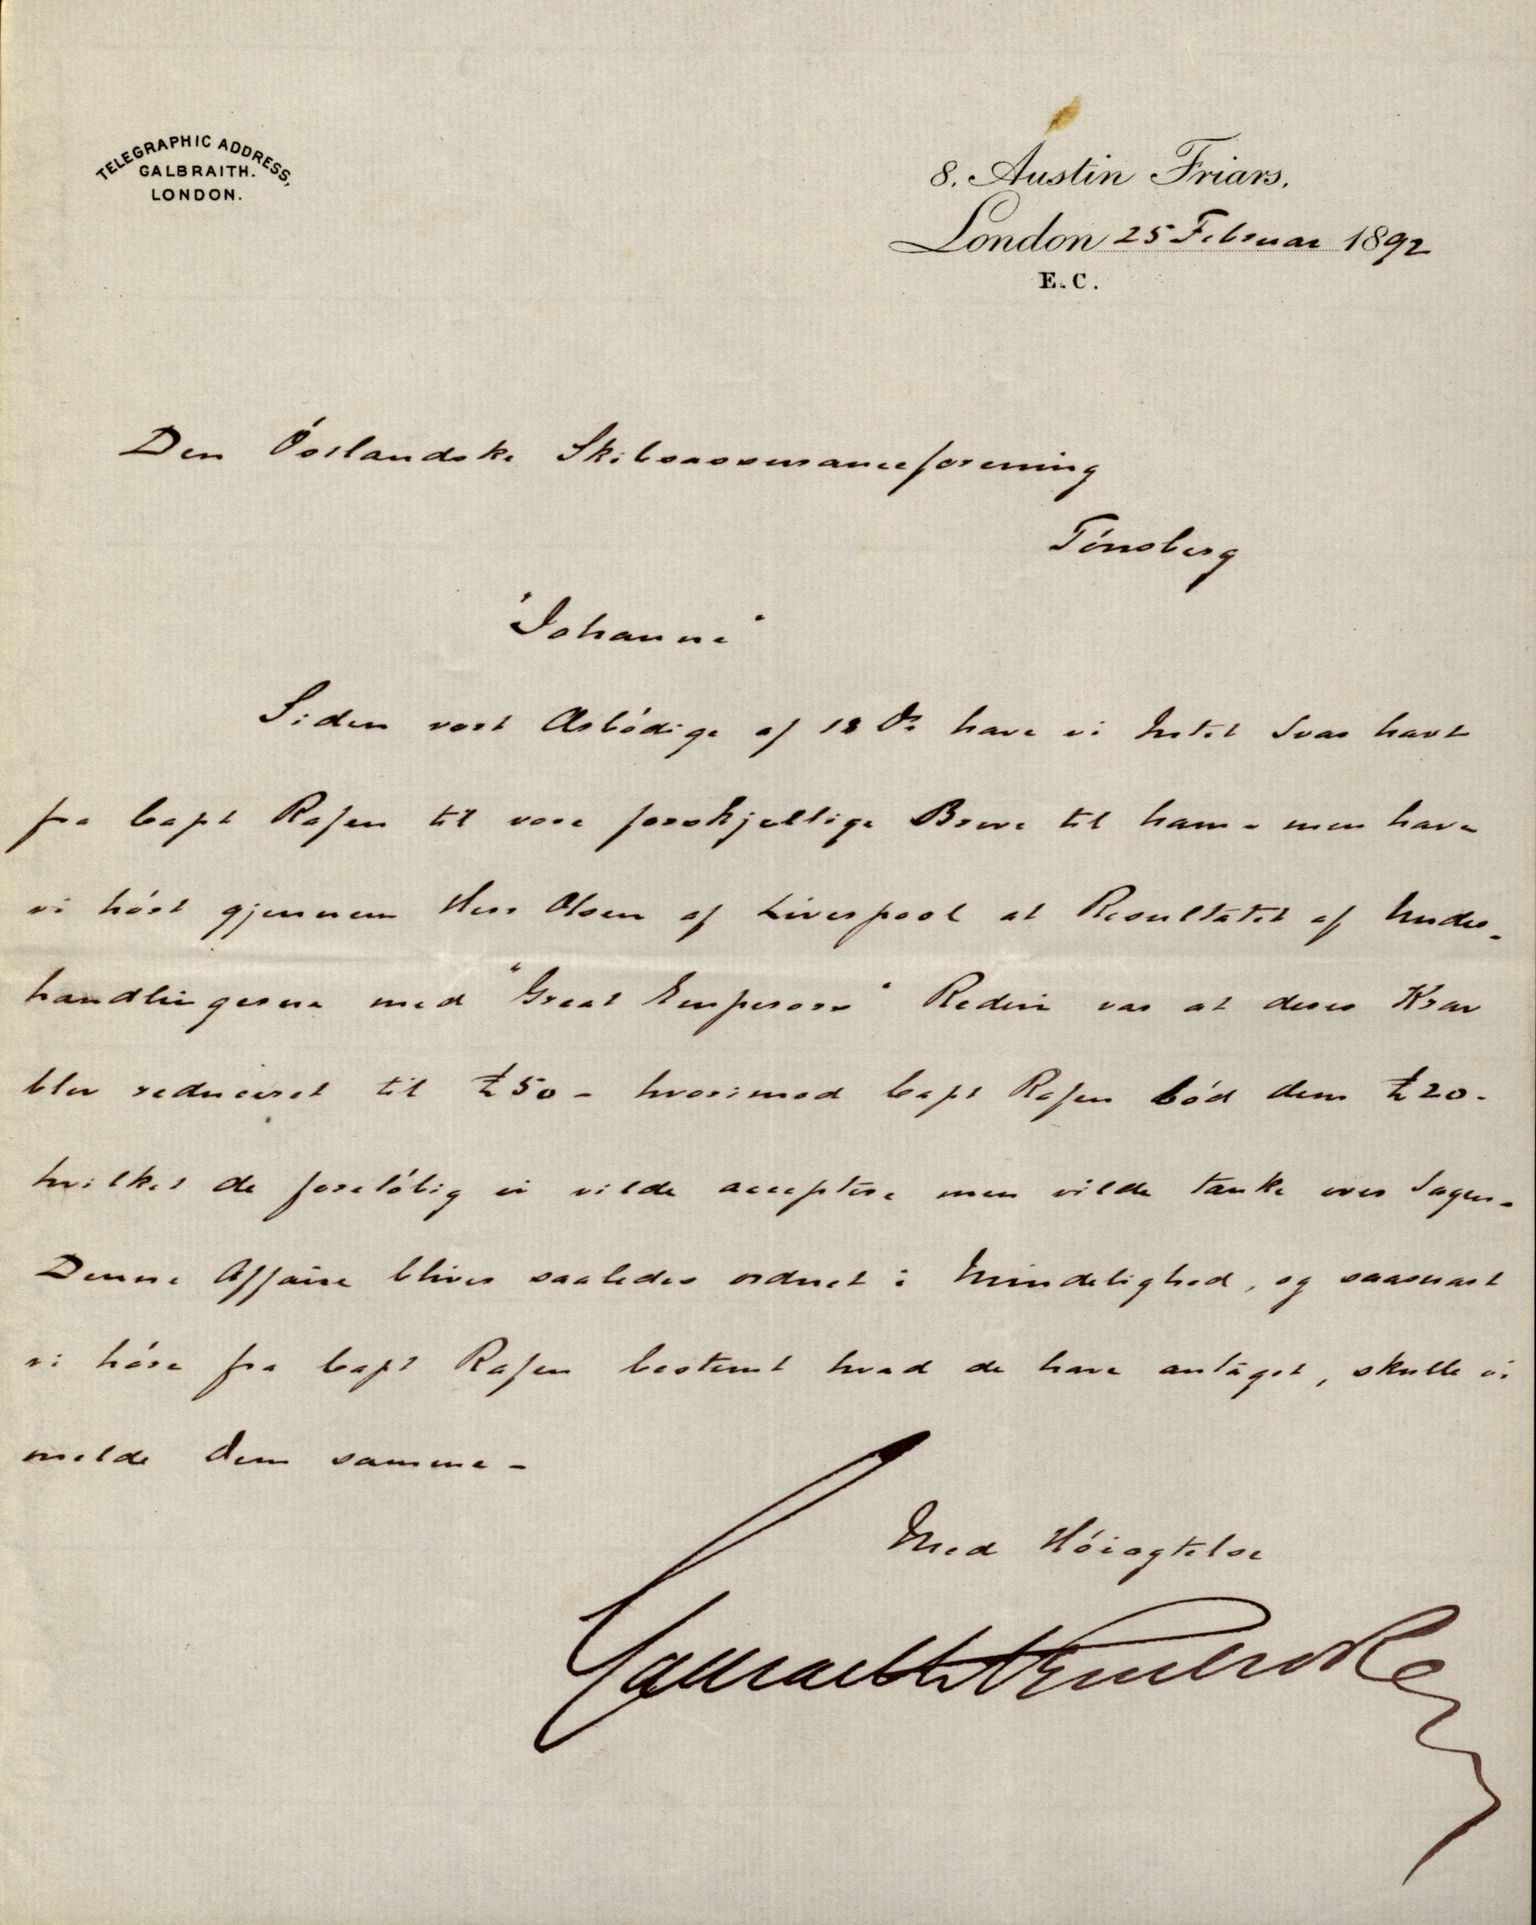 TELEGRAPHIC ADDRESS,
GALBRAITH.
LONDON.
8. Austin Friars,
London 25 Februar 1892
E.C.
Den Óstlandske Skibsassuranceforening
Tónsberg
"Johanne"
Siden vort Ærbódige af 18 Ds have vi Intet Svar havt
fra Capt Rafen til vore forskjellige Breve til ham - men have
vi hórt gjennem Herr Olsen af Liverpool at Resultatet af Under-
handlingerne med "Great Emperors" Rederi var at deres Krav
blev reduceret til £50 - hvorimod Capt Rafen bód dem £20 -
hvilket de forelóbig ei vilde acceptere men vilde tanke over Sagen -
Denne Affaire bliver saaledes ordnet i Mindelighed, og saasnart
vi hóre fra Capt Rafen bestemt hvad de have antaget, skulle vi
melde Dem samme -
Med Hóiagtelse
Galbraith Pembroke